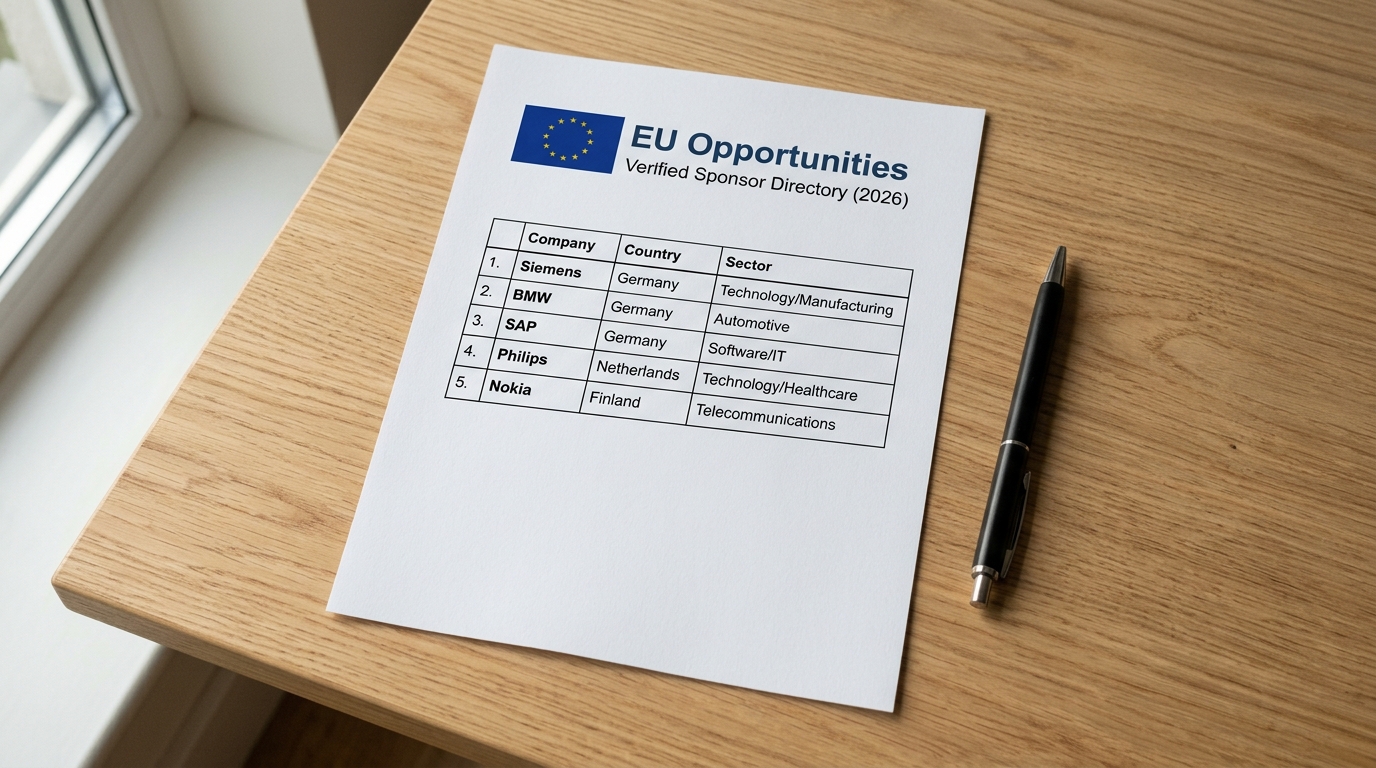 EU Opportunities
Verified Sponsor Directory (2026)
Company Country Sector
1. Siemens Germany Technology/Manufacturing
2. BMW Germany Automotive
3. SAP Germany Software/IT
4. Philips Netherlands Technology/Healthcare
5. Nokia Finland Telecommunications